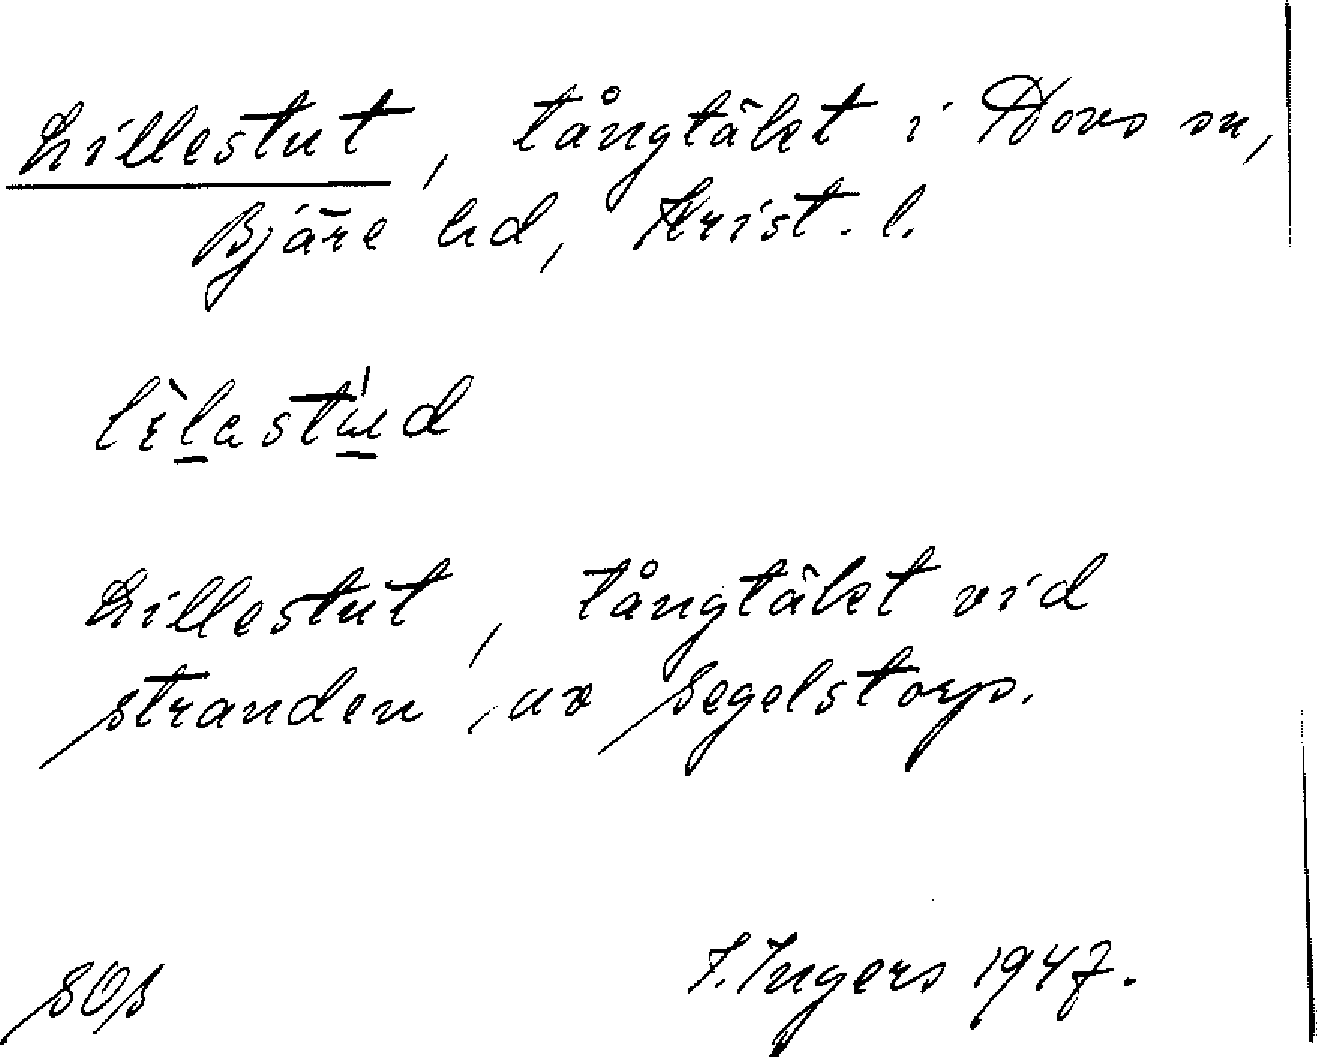 Lillestut, tångtäkt i Hovs sn,
Bjäre hd, Krist. l.
lìlastúd
Lillestut, tångtäkt vid
stranden, av Segelstorp.
SOS I. Ingers 1947.